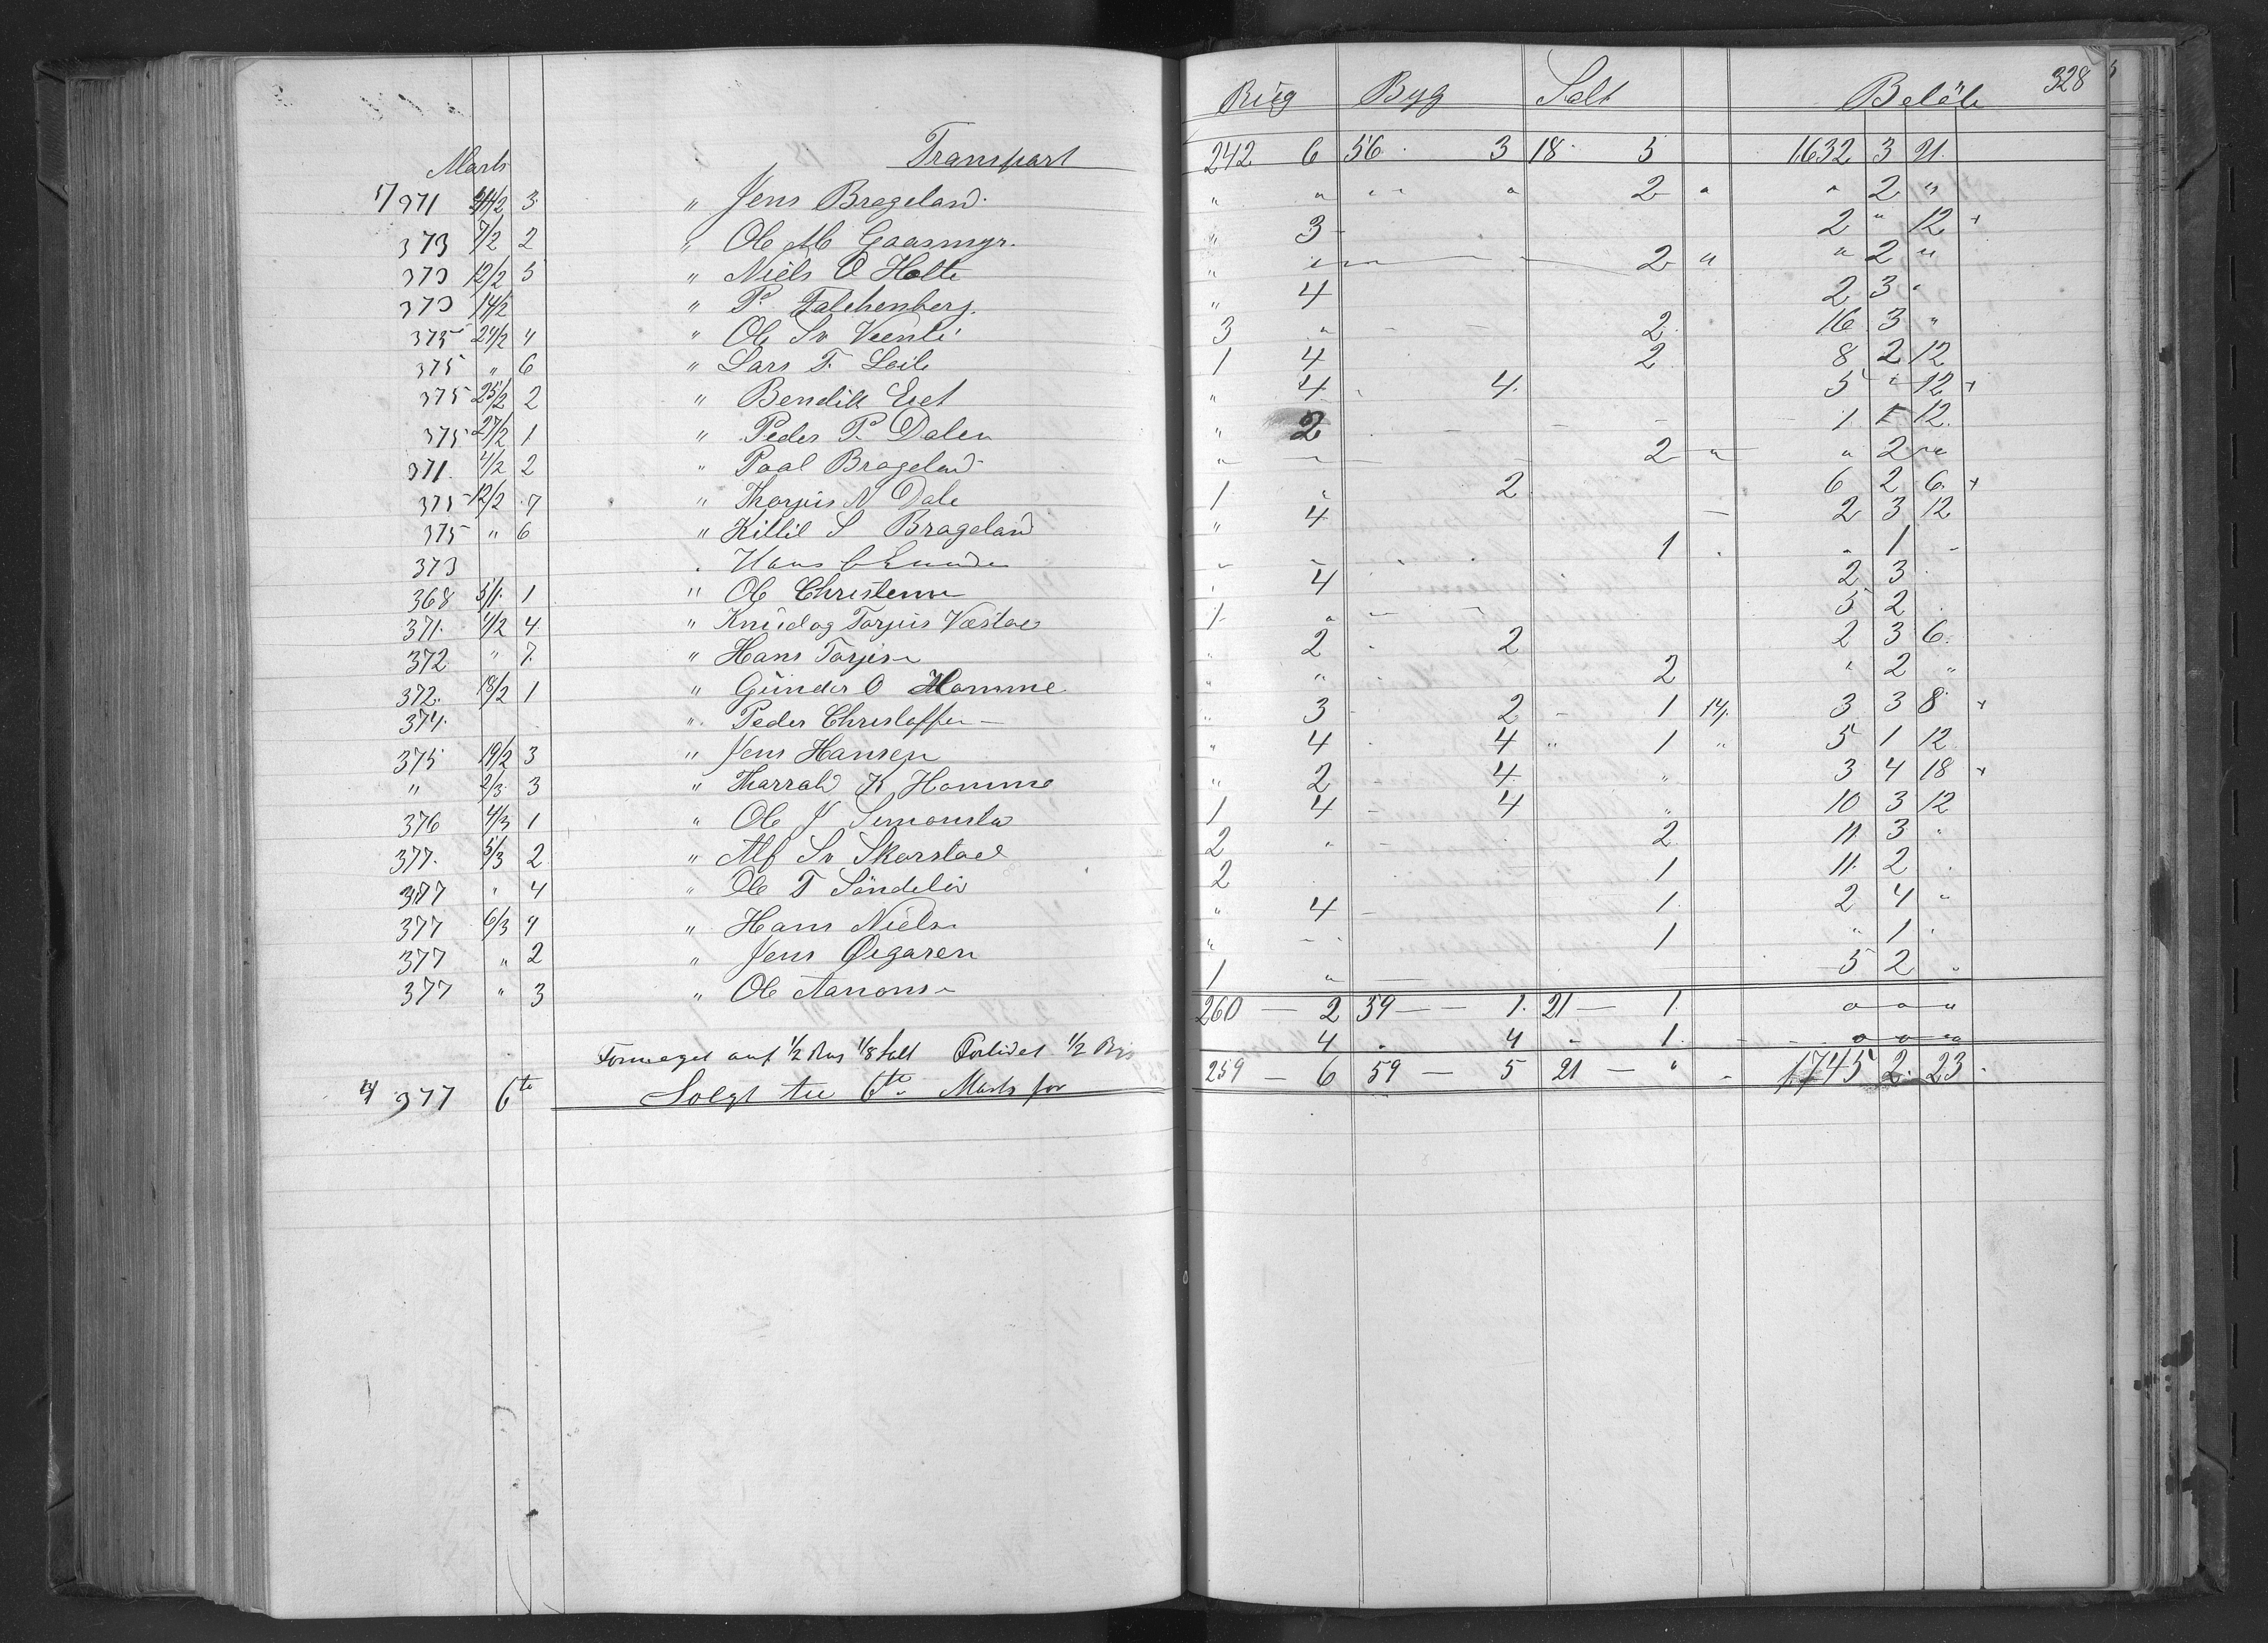 328
Rug Byg Salt Beløb
Marts Transport 242 6 56 3 18 5 1632 3 21
371 4/2 3 " Jens Brageland " " " " " 2 " " 2 "
373 7/2 2 " Ole M Gaasmyr. " 3 2 " 12 +
373 12/2 5 " Niels O Holte " " 2 " " 2 "
373 14/2 " P. Falchenberg. " 4 2 3 "
375 24/2 4 " Ole Sv Veenli 3 " 2 16 3 "
375 " 6 " Lars T. Loile 1 4 2 8 2 12
375 25/2 2 " Bendik Eeg " 4 4 5 " 12 +
375 27/2 1 " Peder P. Dalen " 2 1 1 12
371 4/2 2 " Paal Brageland " " 2 " " 2 "
375 12/2 7 " Thorjus N Dale 1 " 2 6 2 6 +
375 " 6 " Killil S Brageland " 4 2 3 12
373 Hans 1 " 1
368 5/1 1 " Ole Christense " 4 2 3
371 4/2 4 " Knud og Torjus Væstøe 1 " 5 2
372 " 7 " Hans Torjuse " 2 2 2 3 6
372 18/2 1 " Gunder O Homme " " 2 " 2 "
374 " Peder Christoffe " 3 2 1 14 3 3 8 +
375 19/2 3 " Jens Hansen " 4 4 " 1 " 5 1 12
" 2/3 3 " Tharrald K Homme " 2 4 " 3 4 18 +
376 4/3 1 " Ole J Simonsta 1 4 4 " 10 3 12
377 5/3 2 " Alf Sv Skorstøel 2 " 2 11 3 "
377 " 4 " Ole T Söndeliø 2 1 11 2
377 6/3 4 " Hans Nielse " 4 1 2 4 "
377 " 2 " Jens Øigaren " 1 " 1
377 " 3 " Ole Aanonse 1 " 5 2
260 2 59 1 21 1 " " "
Formeget anf 1/2 Rug 1/8 Salt Forlidet 1/2 Byg 4 4 1 " " "
377 6te Solgt til 6te Marts for 259 6 59 5 21 " 1745 2 23